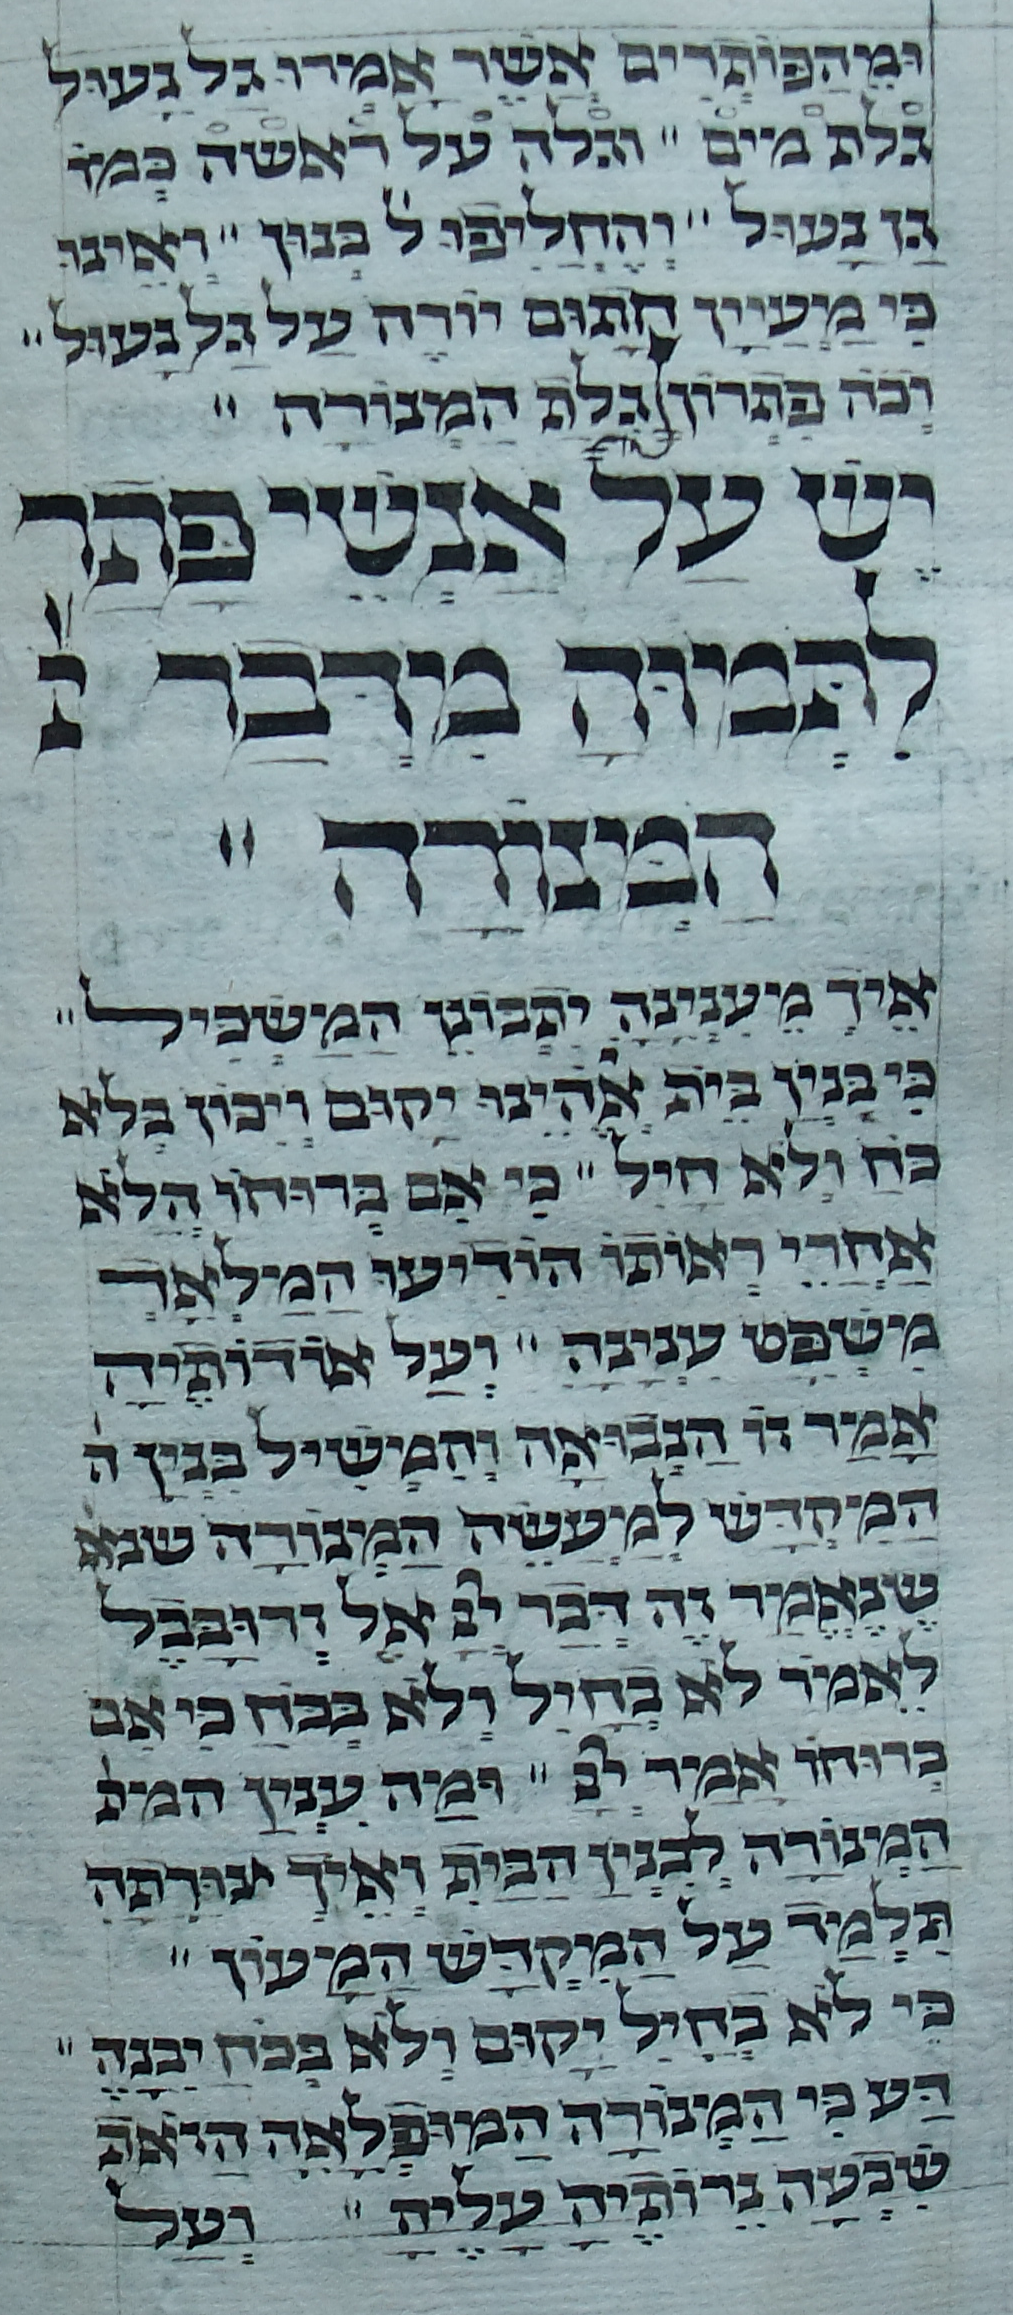 וּמֵהַפּוֹתְרִים אֲשֶׁר אָמְרוּ גַל נָעוּל
גלת מים " וגלה על ראשה כְּמוֹ
גַן נָעוּל " וְהֶחֱלִיפוּ ל' בְּנוּן " וְאֵינוּ
כִּי מַעְיָין חָתוּם יוֹרֶה עַל גַל נָעוּל "
וְכֹה פִּתְרוֹן גֻלַת הַמְנוֹרָה "
יֵשׁ עַל אַנְשֵׁי פְתַר
לִתְּמוּהַּ מִדְּבַר
הַמְנוֹרָה "
אֵיךְ מֵעִנְיָנָהּ יִתְבּוֹנֵן הַמַשְׂכִּיל "
כִּי בִּנְיַן בֵּית אֱלֹהֵינוּ יָקוּם וְיִכּוֹן בְּלֹא
כֹחַ וְלֹא חַיִל " כִּי אִם בְּרוּחוֹ הֲלֹא
אַחֲרֵי רְאוֹתוֹ הוֹדִיעוֹ הַמַלְאָךְ
מִשְׁפַּט עִנְיָנָהּ " וְעַל אוֹדוֹתֶיהָ
אָמַר זוֹ הַנְבוּאָה וְהִמְשִׁיל בִּנְיַן ה
הַמִקְדָשׁ לְמַעֲשֵׂה הַמְנוֹרָה שנא
שֶׁנֶאֱמַר זֶה דְבַר ייי אֶל זְרוּבָּבֶל
לֵאמֹר לֹא בְחַיִל וְלֹא בְּכֹחַ כִּי אִם
בְּרוּחוֹ אָמַר ייי " וּמַה עִנְיַן המנ
הַמְנוֹרָה לְבִנְיַן הַבַּיִת וְאֵיךְ צוּרָתָהּ
תְּלַמֵד עַל הַמִקְדָשׁ הַמָעוֹן "
כִּי לֹא בְּחַיִל יָקוּם וְלֹא בְּכֹחַ יִבָּנֶה "
דַּע כִּי הַמְנוֹרָה הַמוּפְלָאָה הַזֹאת
שִׁבְעָה נֵרוֹתֶיהָ עָלֶיהָ " וְעַל